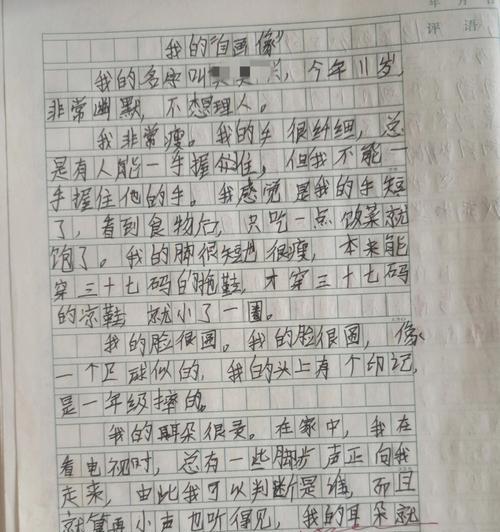 年 月 日
评 语
我的"自画像"
我的名字叫，今年11岁，
非常幽默，不想理人。
我非常瘦。我的手很纤细，总
是有人能一手握住，但我不能一
手握住他的手。我感觉是我的手短
了，看到食物后，只吃一点饭菜就
饱了。我的脚很短也很瘦，本来能
穿三十七码的拖鞋，才穿三十七码
的凉鞋 就小了一圈。
我的脸很圆。我的脸很圆，像
一个 似的，我的头上有个印记，
是一年级摔的。
我的耳朵很灵。在家中，我在
看电视时，总有一些脚步声正向我
走来，由此我可以判断是谁，而且
就算再小声也听得见，我的耳朵就